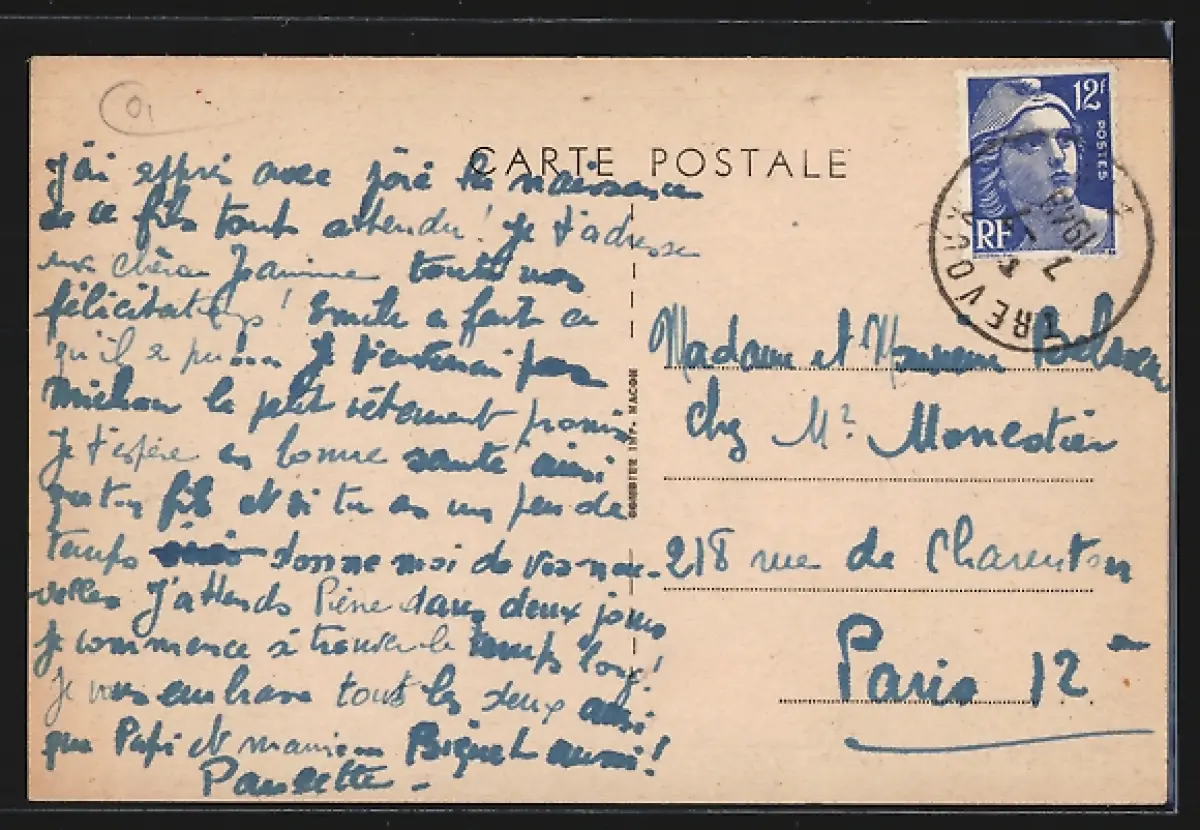 CARTE POSTALE
12F
POSTES
RF
TREVOUX
1948
J'ai appris avec joie la naissance
de ce fils tant attendu! Je t'adresse
ma chère Jeannine toutes nos
félicitations! Emile a fait ce
qu'il a pu Je t'entends pas
le petit vêtement promis
Je t'espère en bonne santé ainsi
que ton fils et si tu as un peu de
temps donne moi de vos nou-
velles J'attends Pierre dans deux jours
Je commence à trouver le temps long!
Je vous embrasse tous les deux ainsi
que Papi et maman Biquet aussi!
Paulette -
COMBIER IMP. MACON
Madame et Monsieur
chez Mr Monestier
218 rue de Charenton
Paris 12e